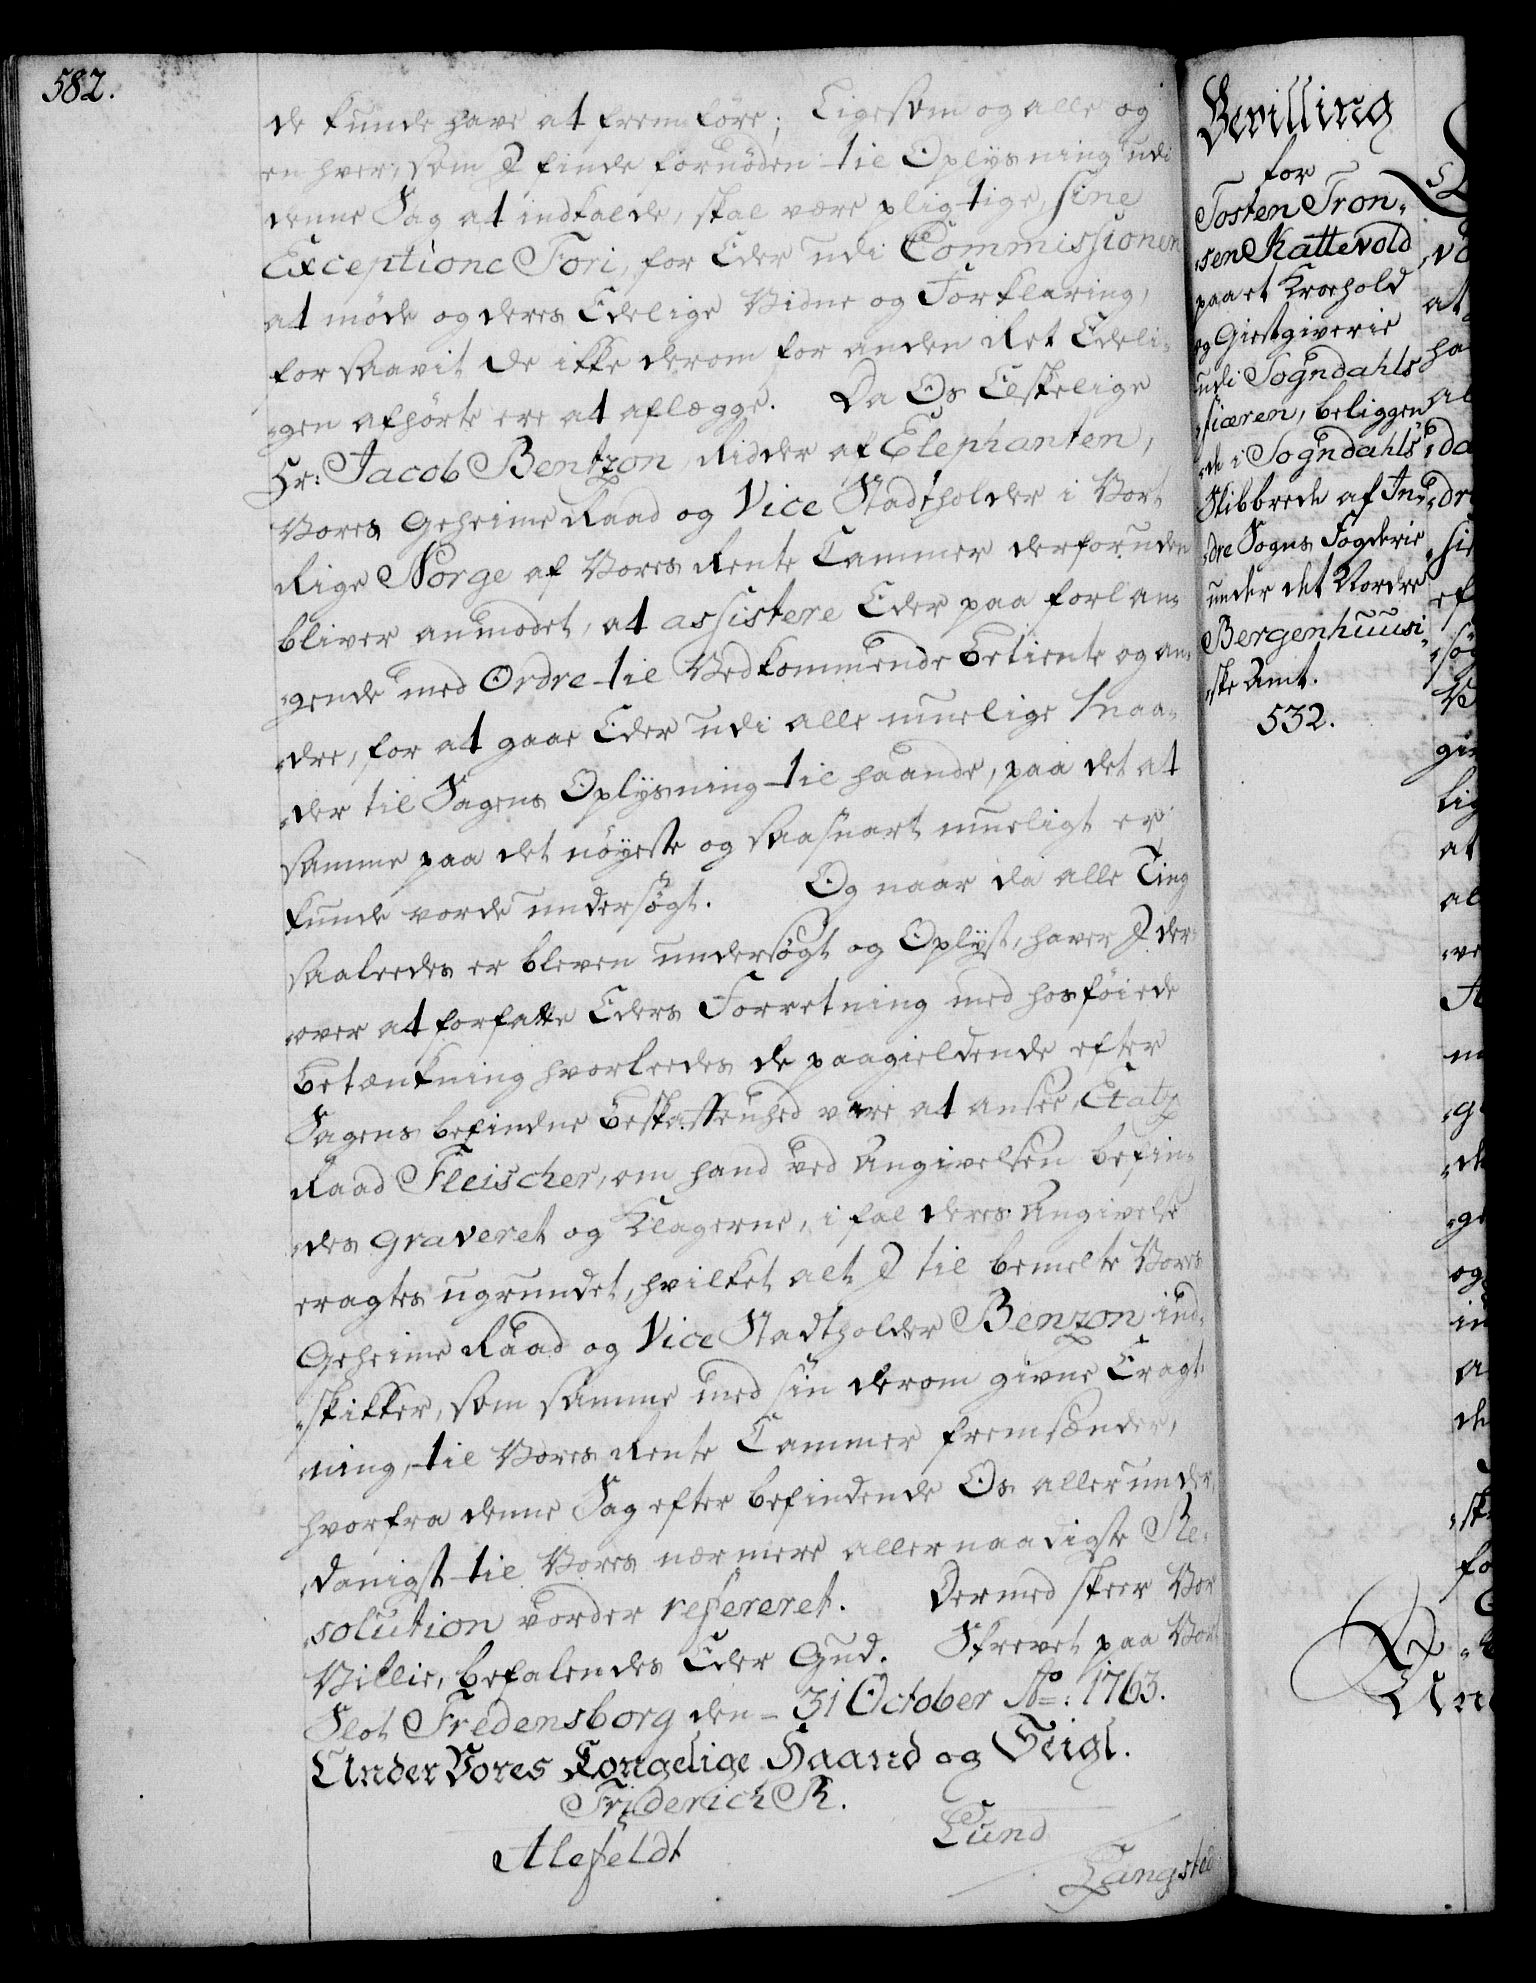 582.
de kunde have at fremføre; Ligesom og alle og
en hver, som I finde fornøden til Oplysning udi
denne Sag at indkalde, skal være pligtige, sine
Exceptione Fori, for Eder udi Commissionen
at møde og deres Edelige Vidne og Forklaring,
forsaavit de ikke derom for anden Ret Edeli-
-gen afhørte ere at aflægge. Da Os Elskelige
Hr: Jacob Bentzon, Ridder af Elephanten,
Vores Geheime Raad og Vice Stadtholder i Vort
Rige Norge af Vores Rente Cammer derforuden
bliver anmodet, at assistere Eder paa forlan-
-gende med Ordre til Vedkommende Betiente og an-
-dre, for at gaae Eder udi alle muelige Maa-
-der til Sagens Oplysning til haande, paa det at
samme paa det nøyeste og saasnart mueligt er
kunde vorde undersøgt. Og naar da alle Ting
saaleedes er bleven undersøgt og Oplyst, haver I der-
-over at forfatte Eders Forretning med hosføiede
Betænkning hvorleedes de paagieldende efter
Sagens befindne Beskaffenhed vare at ansee, Etatz
Raad Fleischer, om hand ved Angivelsen befin-
-des graveret og Klagerne, i fal deres Angivelse
eragtes ugrundet, hvilket alt I til bemelte Vores
Geheime Raad og Vice Stadtholder Benzon ind-
-skikker, som samme med sin derom givne Eragt-
-ning, til Vores Rente Cammer fremsænder,
hvorfra denne Sag efter befindende Os allerunder-
-danigst til Vores nærmere allernaadigste Re-
-solution vorder refereret. Dermed skeer Vor
Villie, befalendes Eder Gud. Skrevet paa Vort
Slot Fredensborg den 31 October Ao: 1763.
Under Vores Kongelige Haand og Seigl.
Friderich R.
Alefeldt Lund
Langsted
Bevilling
for
Tosten Tron-
-sen Kattevold
paa et Kroehold
og Giestgiverie
udi Sogndahls
fiæren, beliggen
-de i Sogndahls
Skibbrede af In-
-dre Sogns Fogderie
under det Nordre
Bergenhuusi-
-ske Amt.
532.